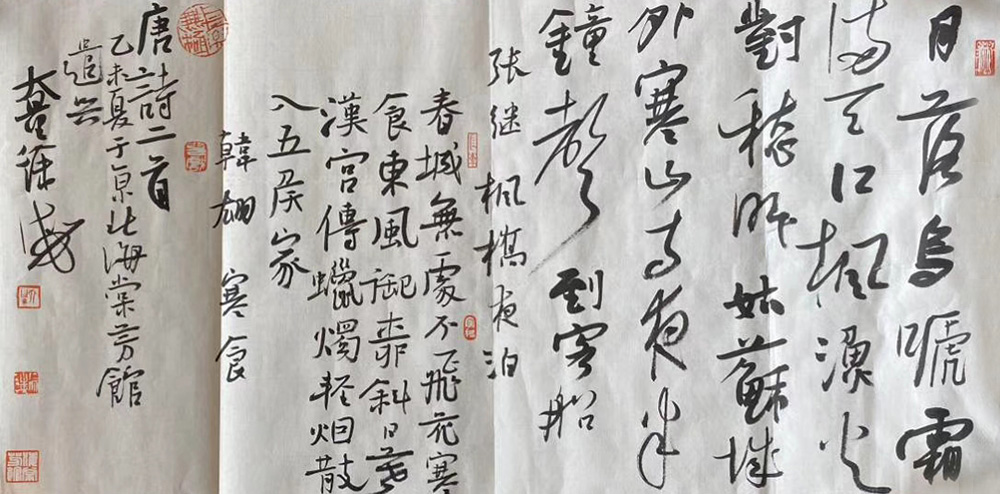 月落乌嗁霜
满天江枫渔火
對愁眠姑蘇城
外寒山寺夜半
鐘聲到客船
张继枫橋夜泊
春城無處不飛花寒
食東風御柳斜日暮
漢宫傳蠟燭軽烟散
入五侯家
韓翃 寒食
唐詩二首
乙未夏于京北海棠芳館